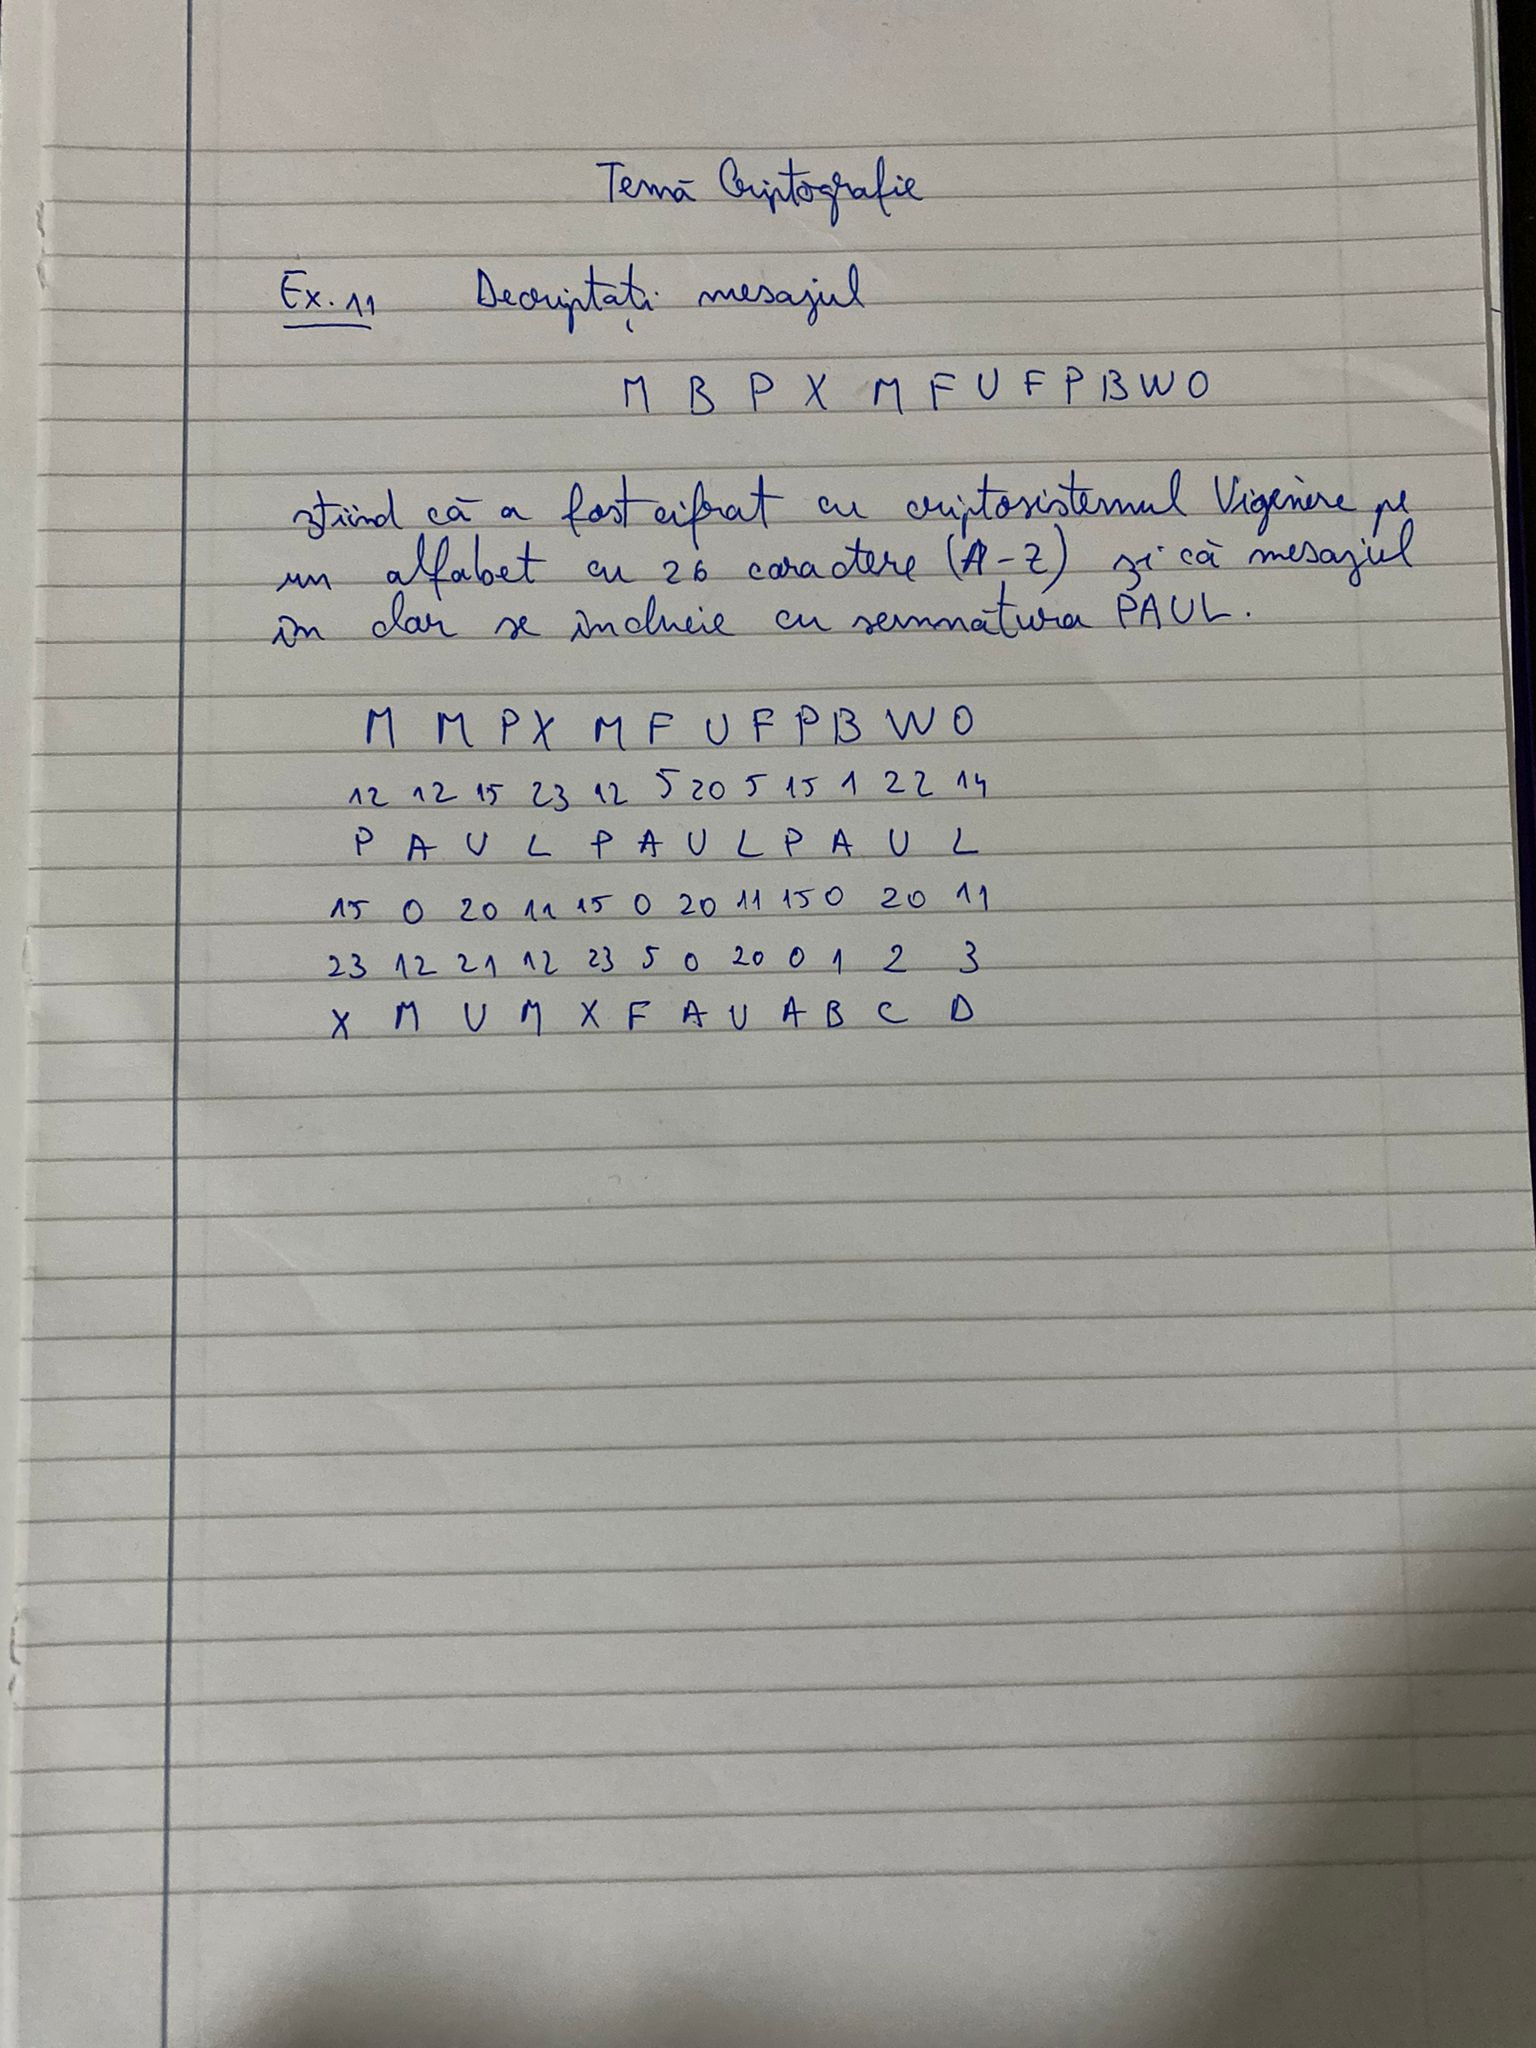 Temă Criptografie
Ex. 11 Decriptați mesajul
M B P X M F U F P B W O
știind că a fost cifrat cu criptosistemul Vigenère pe
un alfabet cu 26 caractere (A-Z) și că mesajul
în clar se încheie cu semnătura PAUL.
M M P X M F U F P B W O
12 12 15 23 12 5 20 5 15 1 22 14
P A U L P A U L P A U L
15 0 20 11 15 0 20 11 15 0 20 11
23 12 21 12 23 5 0 20 0 1 2 3
X M U M X F A U A B C D